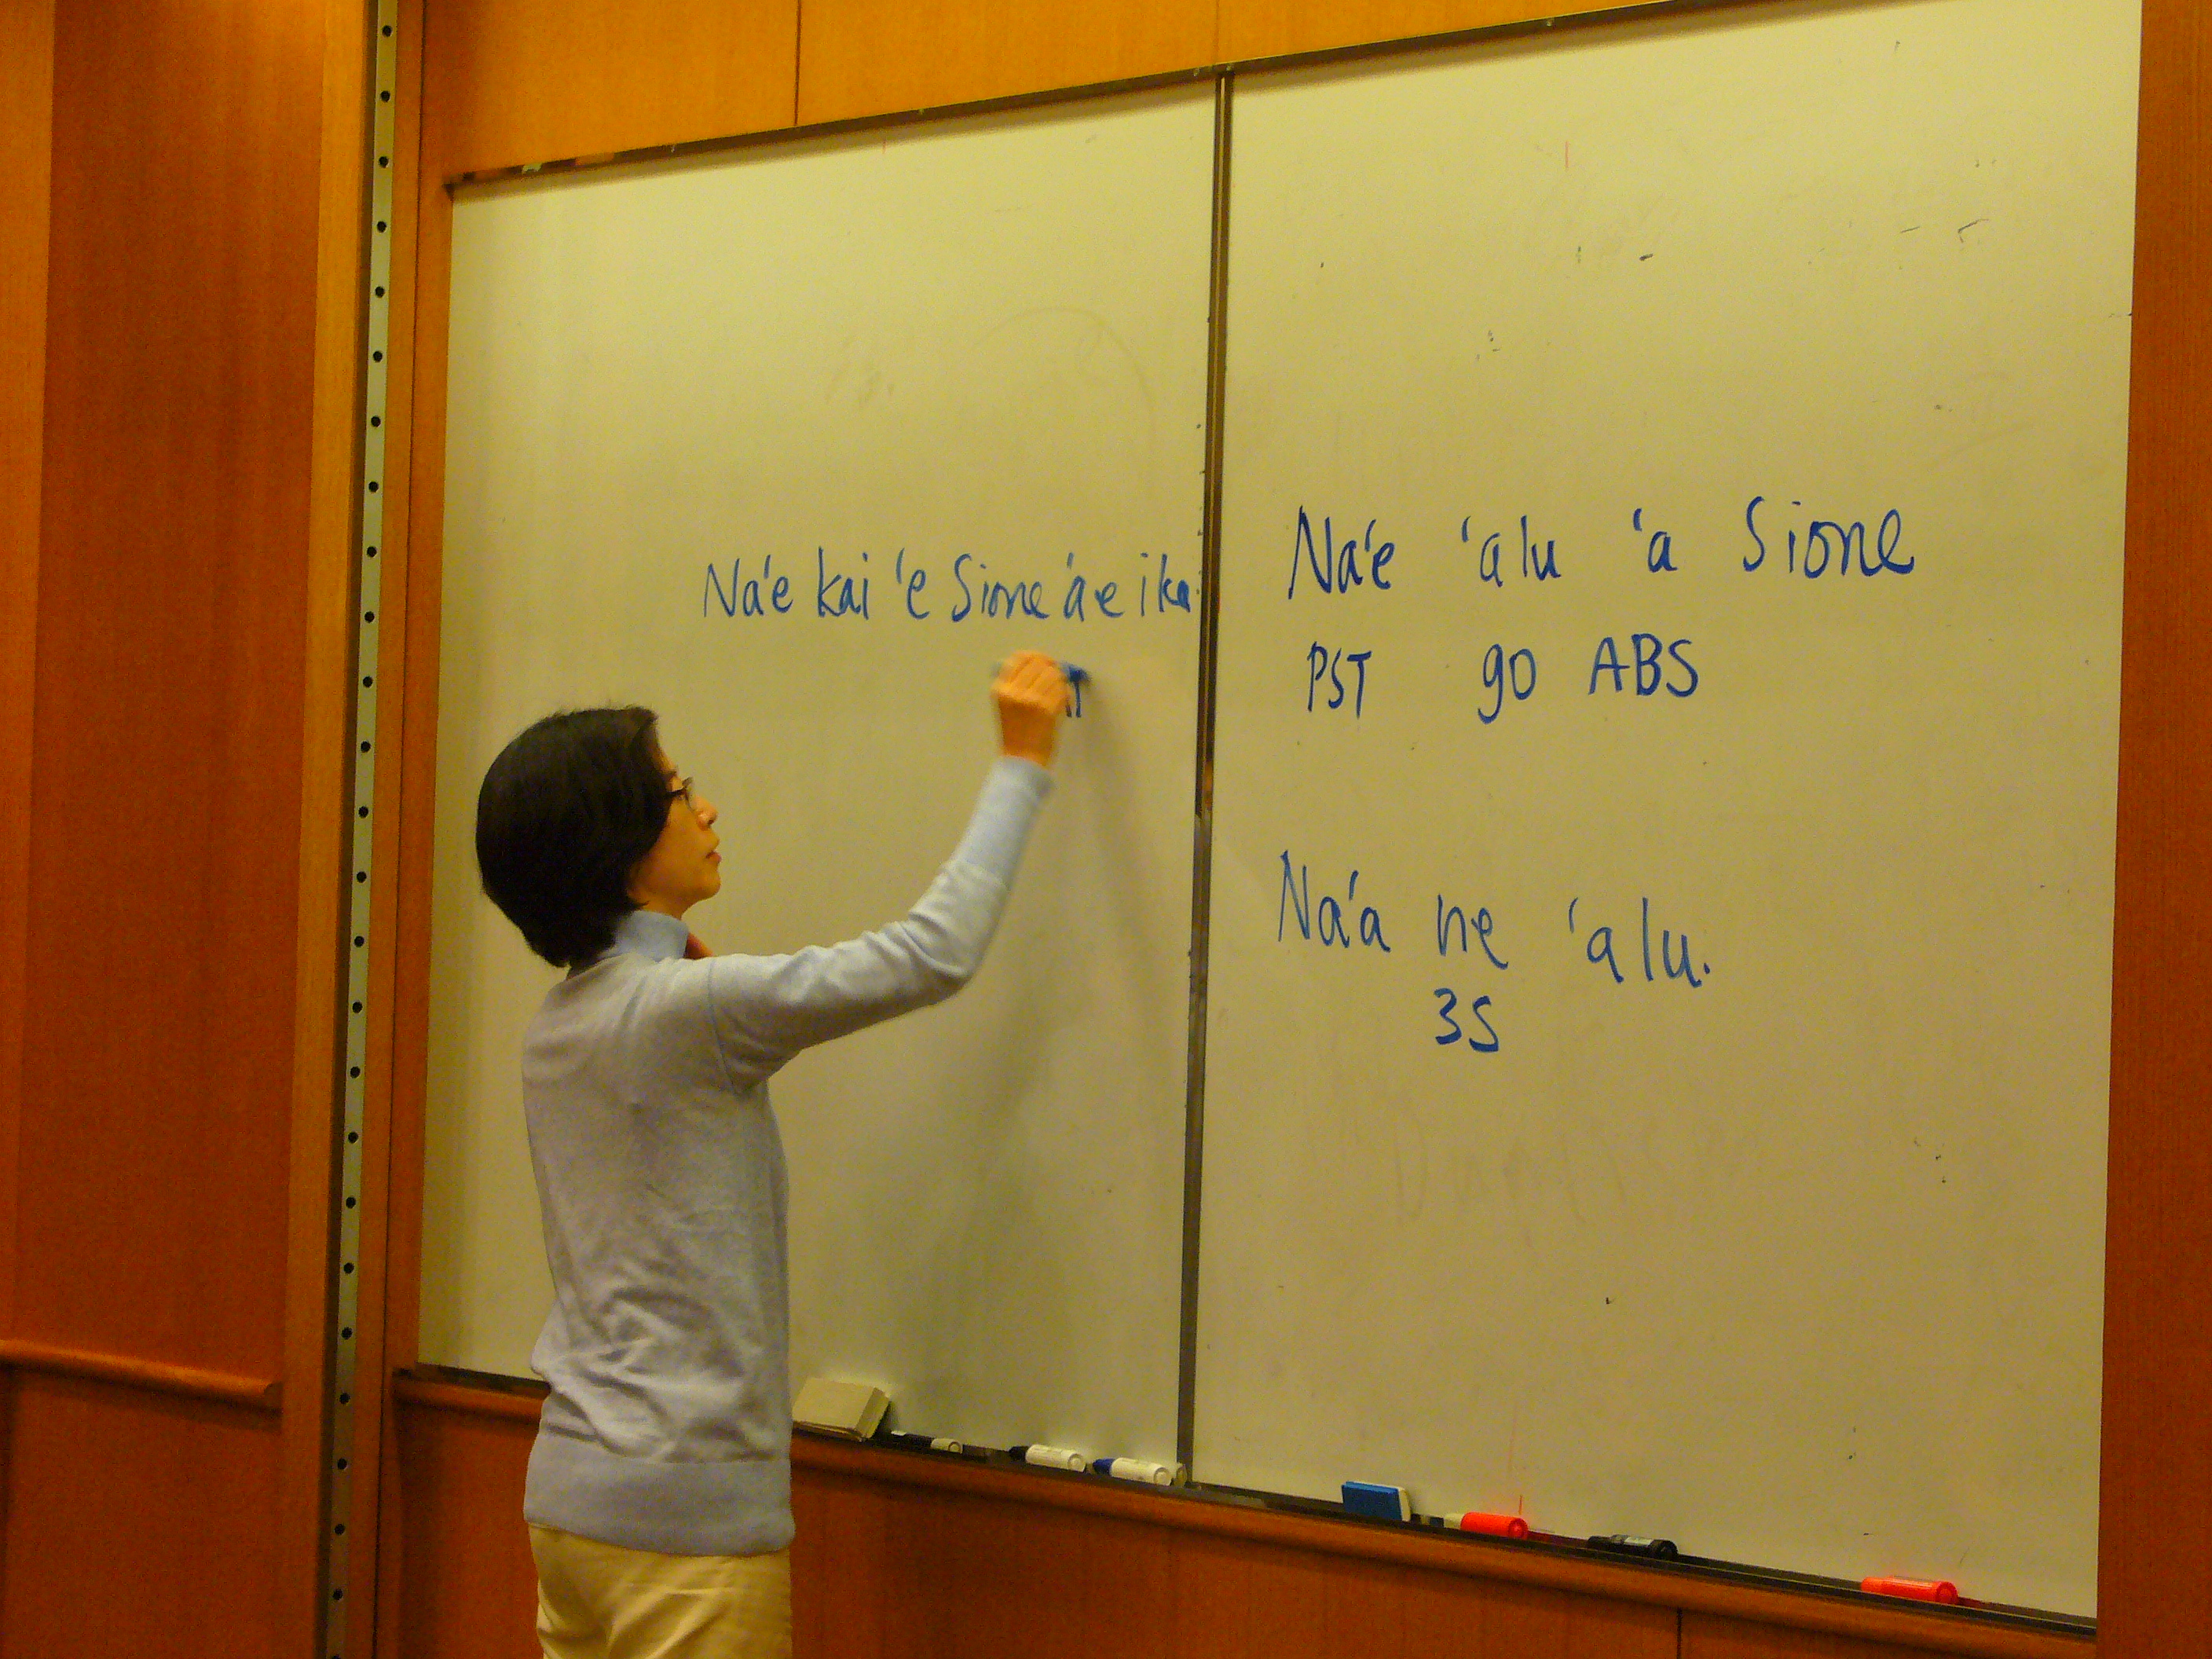 Na'e kai 'e Sione 'a e ika.
Na'e 'alu 'a Sione
PST go ABS
Na'a ne 'alu.
3S